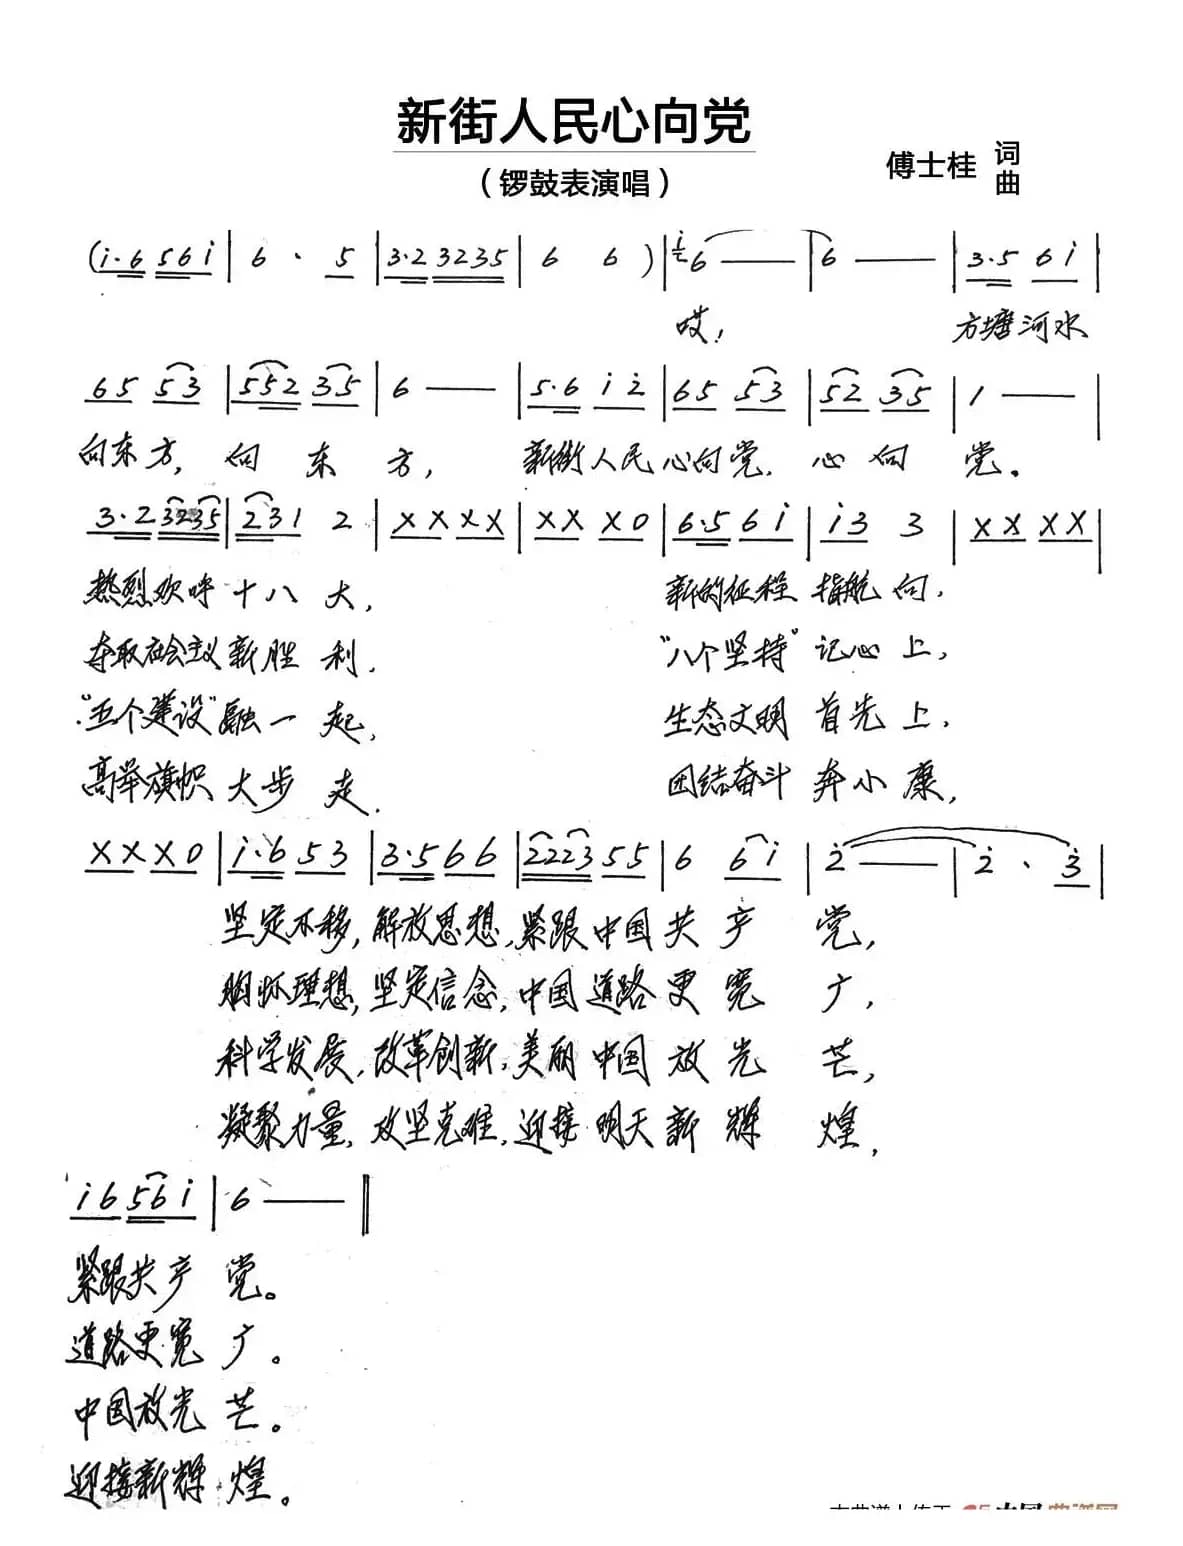 新街人民心向党
（锣鼓表演唱）
傅士桂 词
曲
(i·6 56i | 6 · 5 | 3·2 3235 | 6 6 ) | i 6 —— | 6 —— | 3·5 6i |
哎! 方塘河水
65 53 | 552 35 | 6 —— | 5·6 i2 | 65 53 | 52 35 | 1 —— |
向东方, 向东方, 新街人民心向党. 心向党。
3·2 3235 | 231 2 | XX XX | XX X0 | 6·5 6i | i3 3 | XX XX |
热烈欢呼十八大, 新的征程指航向,
夺取社会主义新胜利, “八个坚持”记心上,
“五个建设”融一起, 生态文明首先上,
高举旗帜大步走. 团结奋斗奔小康,
XX X0 | i·6 53 | 3·5 66 | 2223 55 | 6 6i | 2 —— | 2 · 3 |
坚定不移, 解放思想, 紧跟中国共产党,
胸怀理想, 坚定信念, 中国道路更宽广,
科学发展, 改革创新, 美丽中国放光芒,
凝聚力量, 攻坚克难, 迎接明天新辉煌,
i6 56i | 6 —— ‖
紧跟共产党。
道路更宽广。
中国放光芒。
迎接新辉煌。